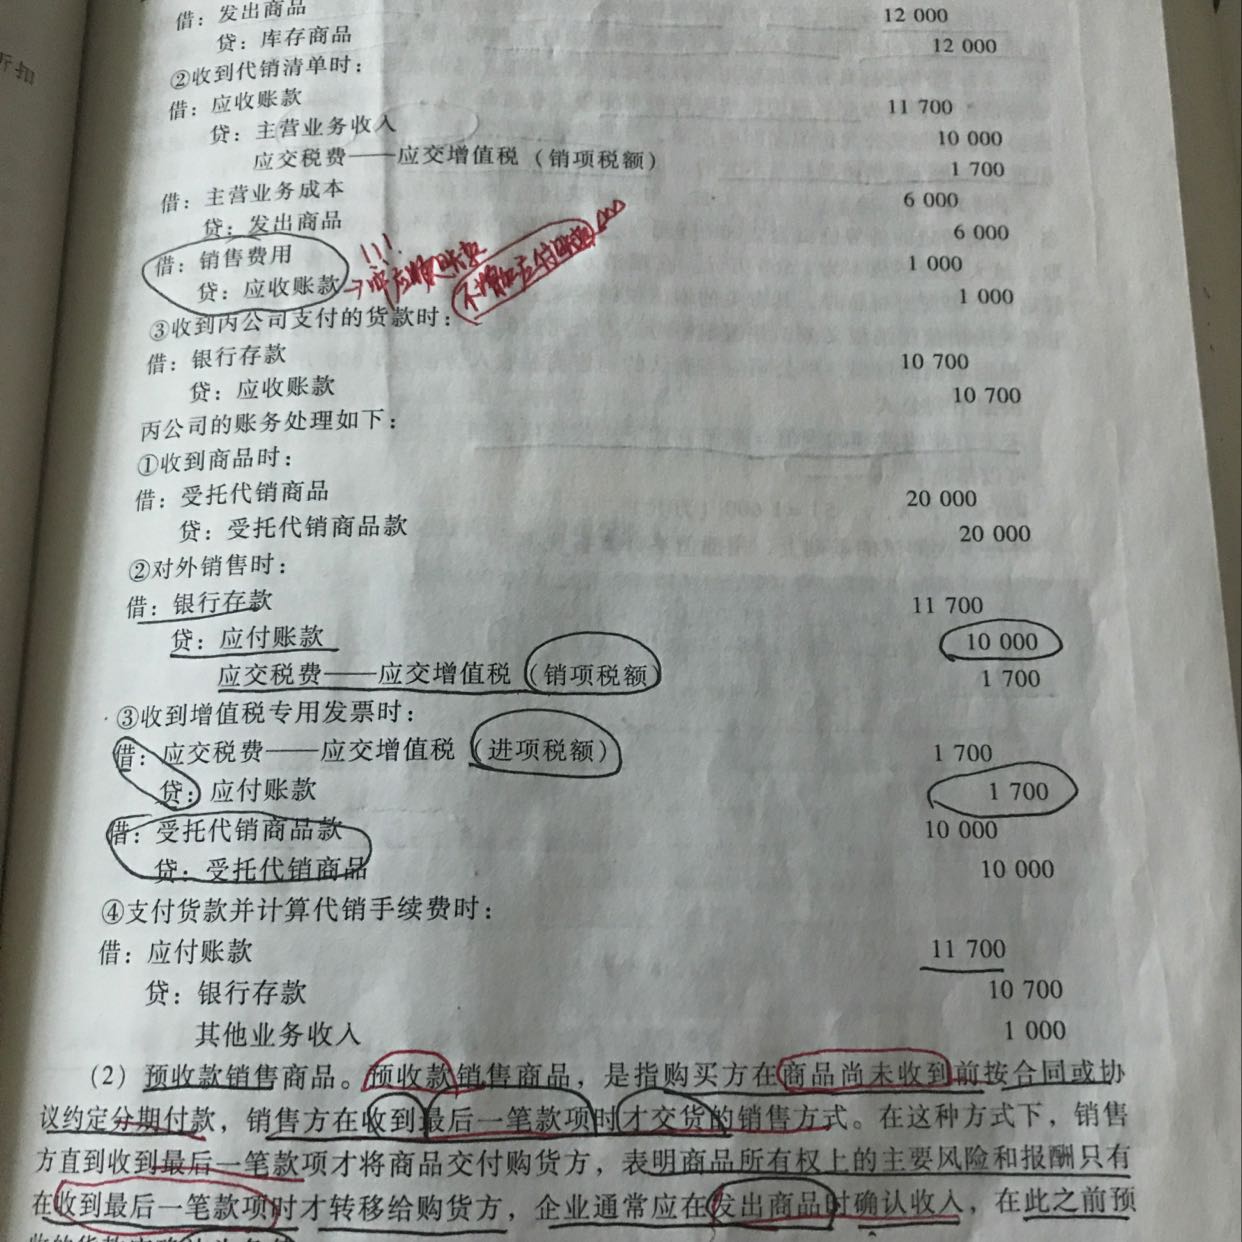 借：发出商品 12 000
贷：库存商品 12 000
②收到代销清单时：
借：应收账款 11 700
贷：主营业务收入 10 000
应交税费——应交增值税（销项税额） 1 700
借：主营业务成本 6 000
贷：发出商品 6 000
借：销售费用 1 000
贷：应收账款 1 000
→冲应收账款
不增加应付账款
!!!
③收到丙公司支付的货款时：
借：银行存款 10 700
贷：应收账款 10 700
丙公司的账务处理如下：
①收到商品时：
借：受托代销商品 20 000
贷：受托代销商品款 20 000
②对外销售时：
借：银行存款 11 700
贷：应付账款 10 000
应交税费——应交增值税（销项税额） 1 700
③收到增值税专用发票时：
借：应交税费——应交增值税（进项税额） 1 700
贷：应付账款 1 700
借：受托代销商品款 10 000
贷：受托代销商品 10 000
④支付货款并计算代销手续费时：
借：应付账款 11 700
贷：银行存款 10 700
其他业务收入 1 000
（2）预收款销售商品。预收款销售商品，是指购买方在商品尚未收到前按合同或协
议约定分期付款，销售方在收到最后一笔款项时才交货的销售方式。在这种方式下，销售
方直到收到最后一笔款项才将商品交付购货方，表明商品所有权上的主要风险和报酬只有
在收到最后一笔款项时才转移给购货方，企业通常应在发出商品时确认收入，在此之前预